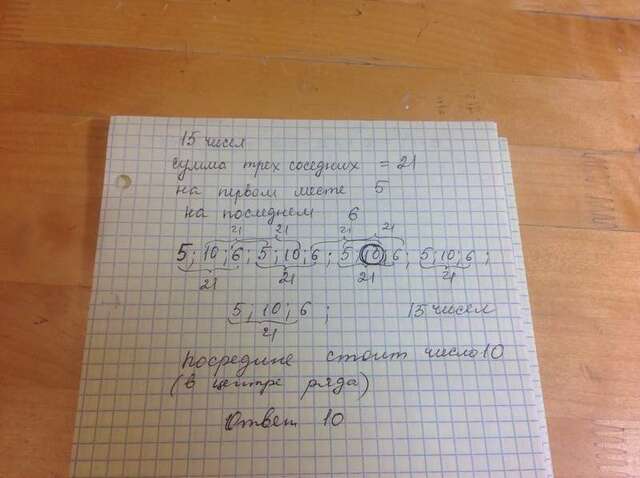 15 чисел
сумма трех соседних = 21
на первом месте 5
на последнем 6
21 21 21 21
5; 10; 6; 5; 10; 6; 5; 10; 6; 5; 10; 6;
21 21 21 21
5; 10; 6; 15 чисел
21
посредине стоит число 10
(в центре ряда)
Ответ 10